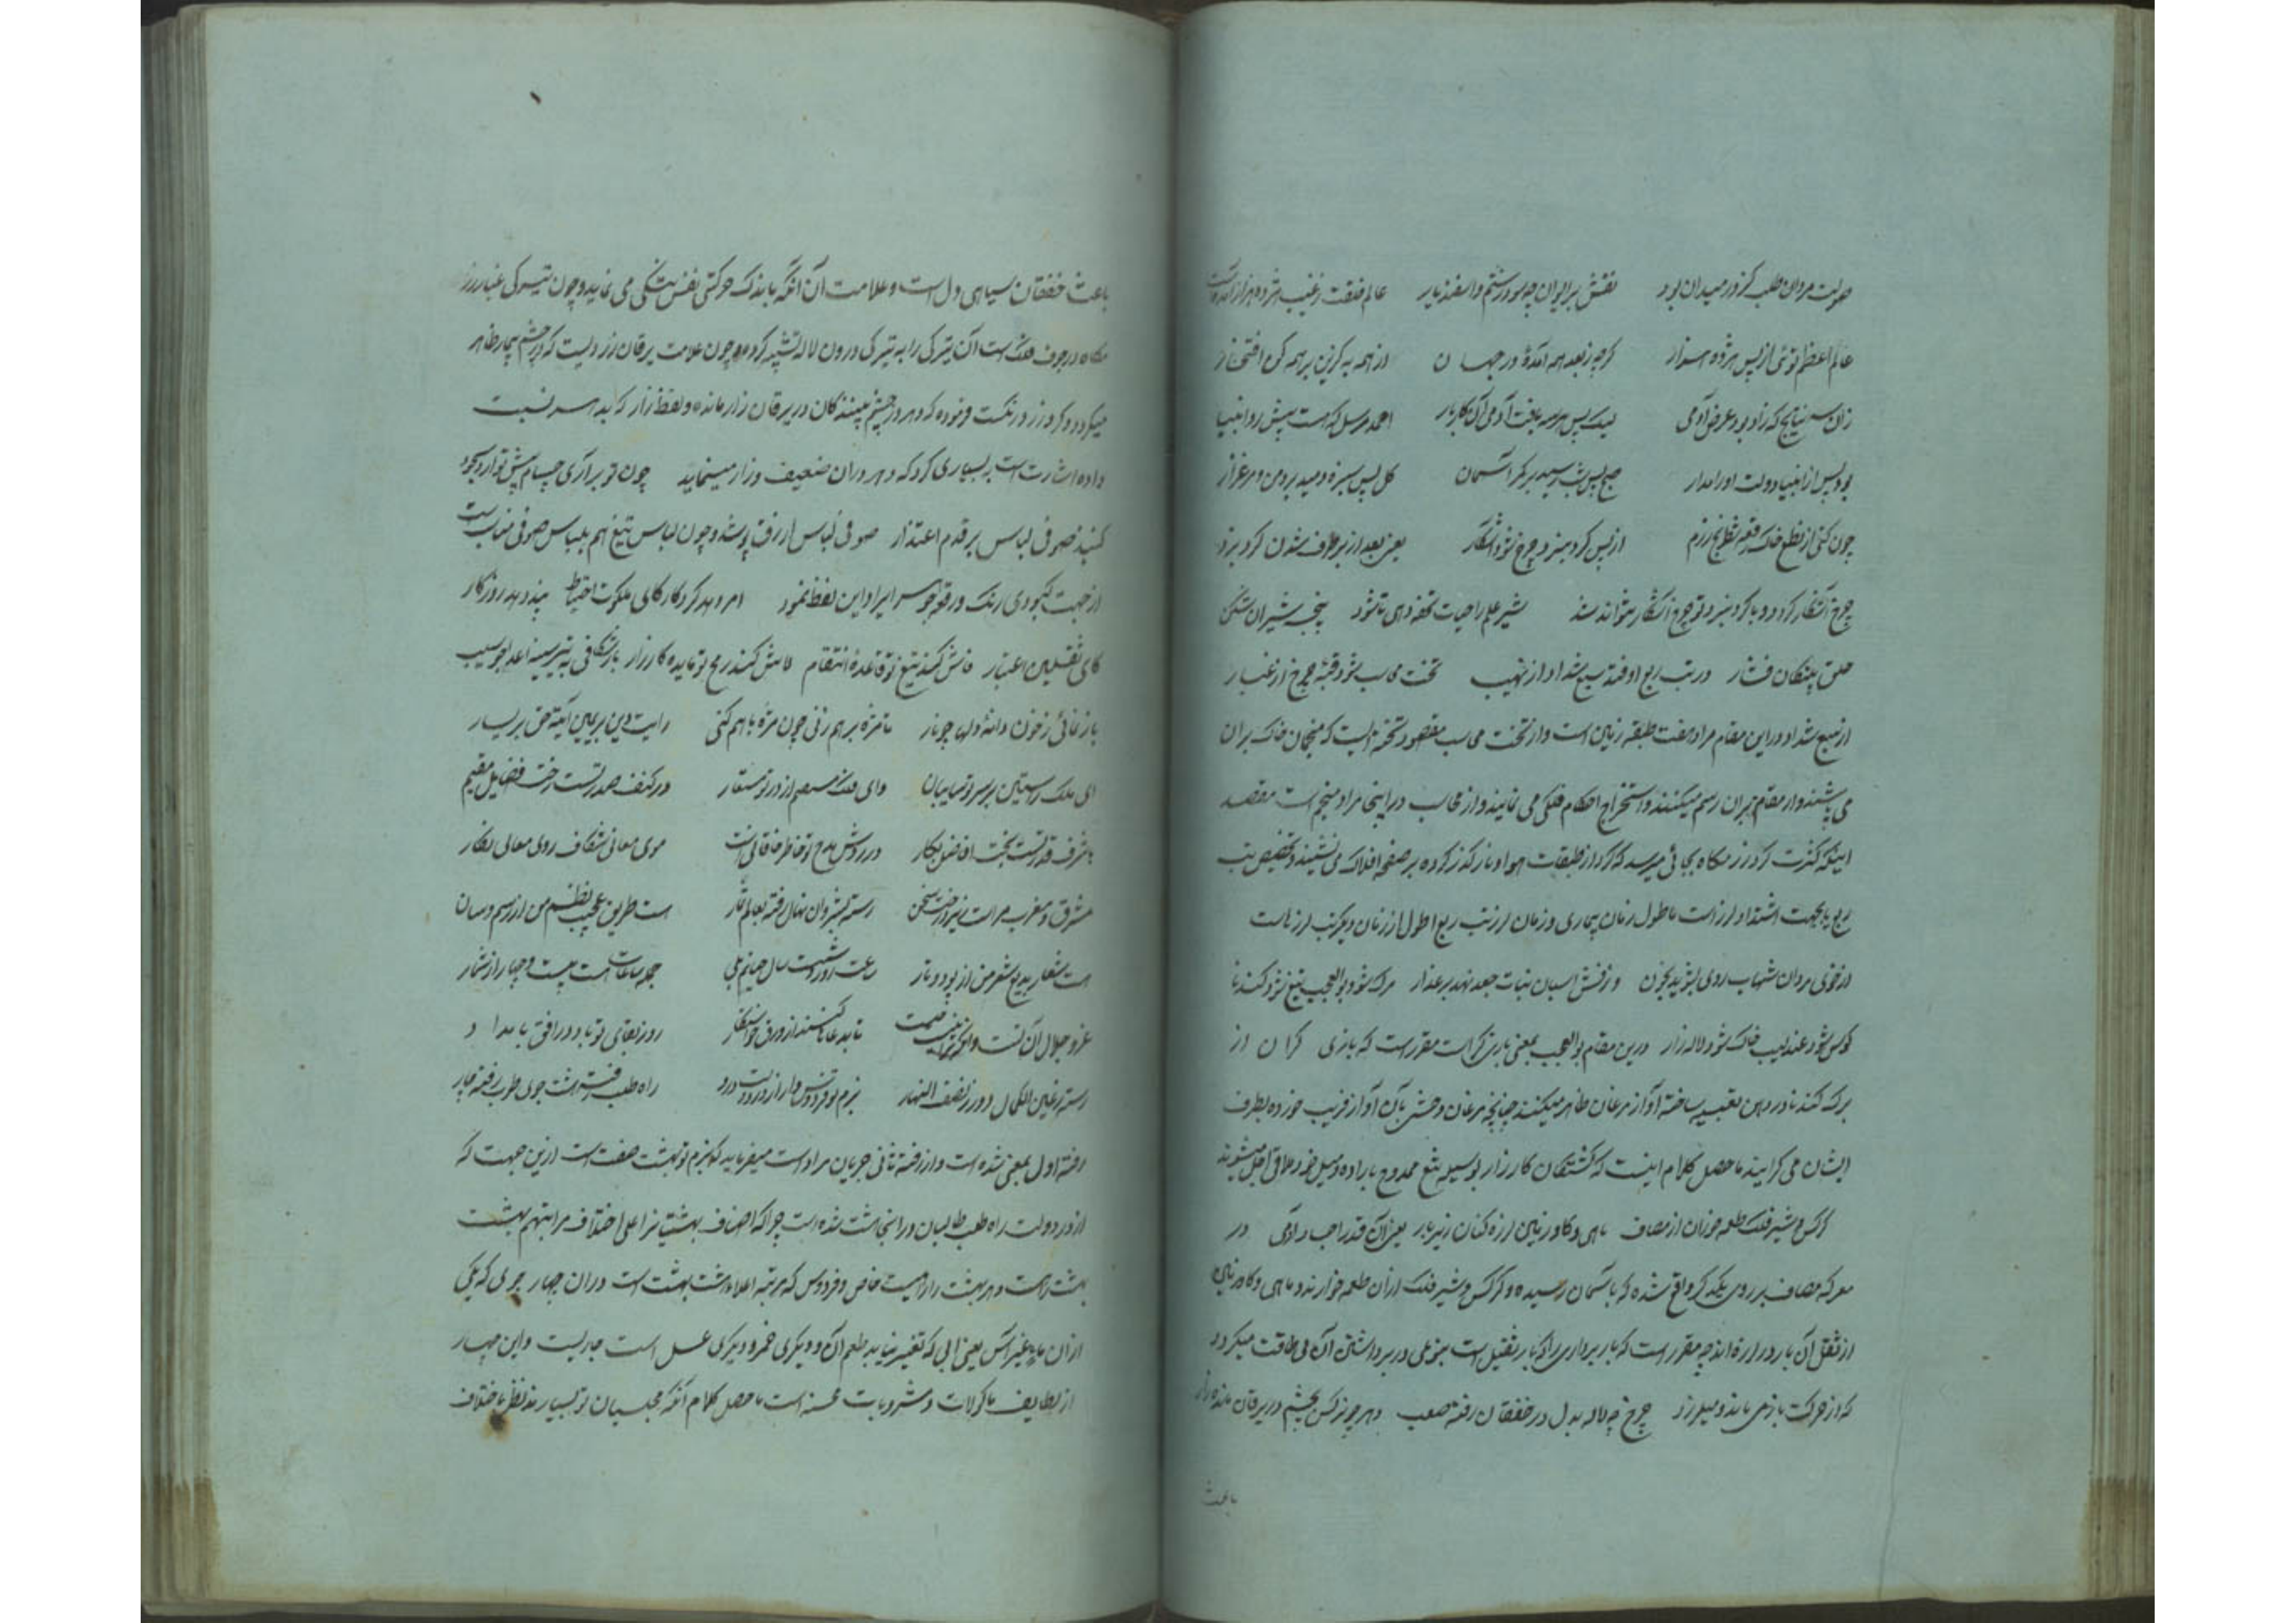 صولت مردان طلب کز در میدان بود نقش بر ایوان چه سود رستم و اسفندیار عالم خلقت ز غیب هژده هزار آمده است
عالم اعظم توئی از پس هژده هزار گرچه ز بعد همه آمدۀ در جهان از همه به گزین بر همه کن افتخار
زان سه نتایج که زاد بود غرض آدمی لیک پس هر سه یافت آدمی آن کاربار احمد مرسل که هست پیش رو انبیا
بود پس از انبیا دولت او را مدار صبح پس شب رسید بر کمر آسمان گل پس سبزه دمید بر دمن و مرغزار
چون کنی از نطع خاک رقعه شطرنج رزم از پس گرد نبرد چرخ شود اشکار یعنی بعد از برطرف شدن گرد نبرد
چرخ آشکار گردد و با گرد نبرد تو چرخ آشکار میتواند شد شیر علم را حیات تحفه دهی تا شود پنجه شیران شکن
حلق پلنگان فشار در تب ربع اوفتد سبع شداد از نهیب تخت محاسب شود قبۀ چرخ از غبار
از سبع شداد در این مقام مراد هفت طبقه زمین است و از تخت محاسب مقصود تخته ایست که منجمان خاک بران
می پاشند و ارقام بران رسم میکنند و استخراج احکام فلکی می نمایند و از محاسب در اینجا مراد منجم است مقصد
اینکه کثرت گرد رزمگاه بجائی میرسد که گرد از طبقات هوا و نار گذر کرده بر صفحه افلاک می نشیند و تخصیص تب
ربع یا بجهت اشتداد لرز است یا طول زمان بیماری و زمان لرز تب ربع اطول از زمان دیگر تب لرز هاست
از خوی مردان شهاب روی بشوید بخون وز نفس اسبان نبات جعد نهد بر عذار مرگ شود بوالعجب تیغ شود گندنا
کوس شود عندلیب خاک شود لاله زار درین مقام بوالعجب بمعنی بازیگر است مقرر است که بازی گران از
برگ گندنا در دهن تعبیه ساخته آواز مرغان ظاهر میکنند چنانچه مرغان وحشی بآن آواز فریب خورده بطرف
ایشان می گرایند ماحصل کلام اینست که کشتگان کارزار بوسیله تیغ ممدوح باراده و میل خود ملاقی اجل میشوند
کرکس و شیر فلک طعمه خوران از مصاف ماهی و گاو زمین لرزه کنان زیر بار یعنی آن قدر اجساد آدمی در
معرکه مصاف بر روی یکدیگر واقع شده که باسمان رسیده و کرکس و شیر فلک ازان طعمه خوارند و ماهی و گاو زمین
از ثقل آن بار در لرزه اند چه مقرر است که بار برداری را که بار ثقیل است بنوعی در برداشتن آن بی طاقت میگردد
که از حرکت باز می ماند و میلرزد چرخ چو لاله بدل در خفقان رفته صعب دهر چو نرگس بچشم در یرقان مانده زار
باعث
باعث خفقان سیاهی دل است و علامت آن آنکه باندک حرکتی نفس تنگی می نماید و چون تیرگی غبار رز
مگاه در جوف فلک است آن تیرگی را به تیرگی درون لاله تشبیه کرده و چون علامت یرقان زردیست که در چشم بیمار ظاهر
میگردد و گرد زرد رنگ است فرموده که دهر در چشم بینندگان در یرقان زار مانده و لفظ زار که بدهر نسبت
داده اشارت است به بسیاری گرد که دهر دران ضعیف و زار مینماید چون تو برآری حسام پیش تو آرد سجود
گنبد صوفی لباس بر قدم اعتذار صوفی لباس ازرق پوشند و چون لباس تیغ هم بلباس صوفی مناسبت
از جهت کبودی رنگ ایراد این لفظ نمود امر دهد کردگار کای ملکوت احتیاط پند دهد روزگار
کای ثقلین اعتبار فاش کند تیغ تو قاعدۀ انتقام لاش کند رمح تو مایده کارزار بازشکافی به تیر سینه اعدا چو سیب
بازنمائی ز خون دانۀ دلها چو نار تا مژه بر هم زنی چون مژه با هم کنی رایت دین بر یمین آیة حق بر یسار
ای ملک راستین بر سر تو سایبان وای فلک مستعجل از در تو مستعار در کنف صدر تست رخت فضایل مقیم
بر شرف قدر تست بخت افاضل بکار در روش مدح تو خاطر خاقانی است موی معانی شکاف روی معالی نگار
مشرق و مغرب مراست زیر درخت سخن رسته ز شروان نهال رفته بعالم ثمار هست طریق عجیب نظم من از رسم و سان
هست شعار بدیع شعر من از پود و تار ساعت روز و شب است سال حیاتم بلی جمله ساعات هست بیست و چهار از شمار
عز و جلال آن تست وانکه ترا نیست نیست تا بد عا گستند از ورق خواستگار روز بقای تو باد در افق بامداد
رسته ز عین الکمال دور ز نصف النهار بزم تو فردوس وار از در دولت درو راه طلب رفته هشت جوی طرب رفته چار
رفته اول بمعنی شده است و از رفته ثانی جریان مراد است میفرماید که بزم تو بهشت صفت است ازین جهت که
از در دولت راه طلب طالبان در انجا هشت شده است چرا که اصناف بهشتیانرا علی اختلاف مراتبهم هشت
بهشت است و هر بهشت را راهیست خاص و فردوس که مرتبه اعلا هشت بهشت است دران چهار جوی که یکی
ازان ماء غیر آسن یعنی آبی که تغییر نیابد طعم آن و دیگری خمر و دیگری عسل است جاریست و این چهار
از لطایف ماکولات و مشروبات محسنه است ماحصل کلام آنکه مجلسیان تو بسیارند نظر باختلاف